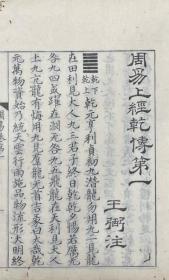 周易上經乾傳第一
王弼注
䷀乾下乾上乾元亨利貞初九潛龍勿用九二見龍
在田利見大人九三君子終日乾乾夕惕若厲无
咎九四或躍在淵无咎九五飛龍在天利見大人
上九亢龍有悔用九見羣龍无首吉彖曰大哉乾
元萬物資始乃統天雲行雨施品物流形大明終